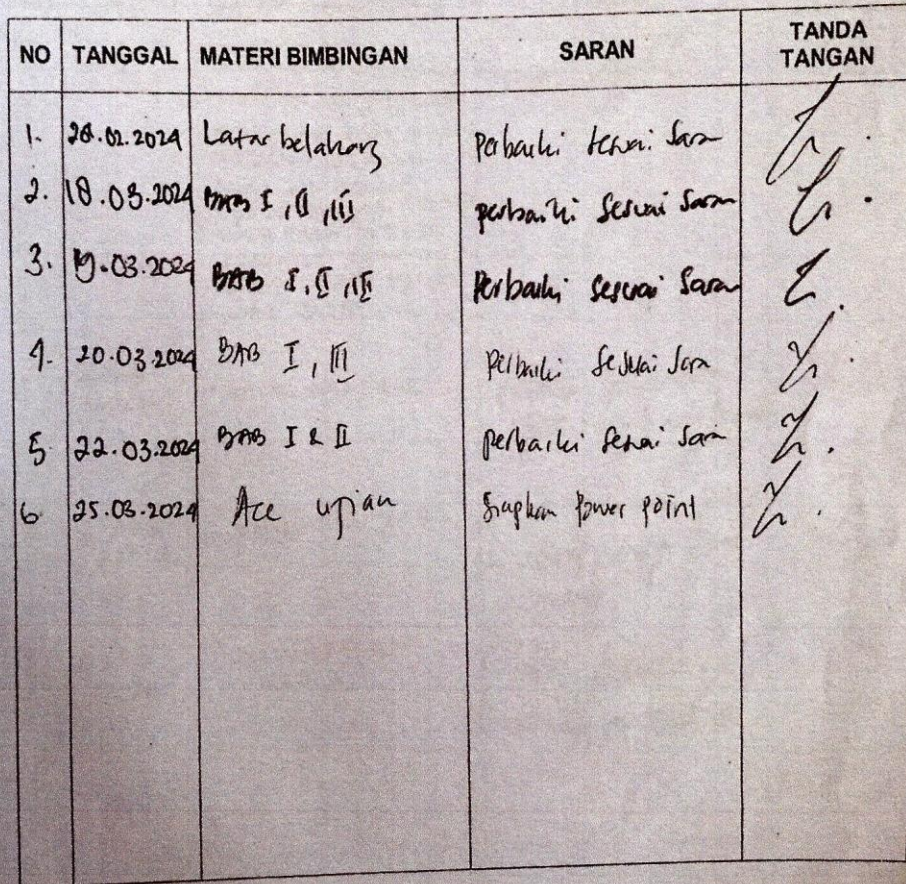 NO TANGGAL MATERI BIMBINGAN SARAN TANDA TANGAN
1. 28.02.2024 Latar belakang perbaiki sesuai saran
2. 18.03.2024 BAB I, II, III perbaiki sesuai saran
3. 19.03.2024 BAB I, II, III Perbaiki sesuai saran
4. 20.03.2024 BAB I, III perbaiki sesuai saran
5. 22.03.2024 BAB I & II perbaiki sesuai saran
6 25.03.2024 Acc ujian Siapkan power point